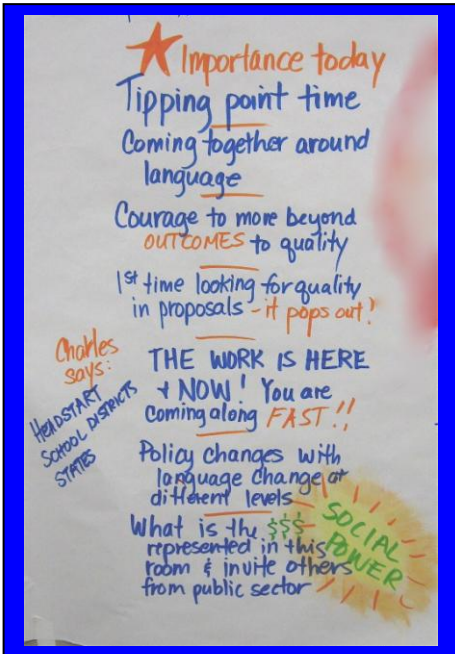 Importance today
Tipping point time
Coming together around
language
Courage to more beyond
OUTCOMES to quality
1st time looking for quality
in proposals - it pops out!
Charles
says:
HEADSTART
SCHOOL DISTRICTS
STATES
THE WORK IS HERE
+ NOW! You are
coming along FAST!!
Policy changes with
language change at
different levels
What is the $$$
represented in this
room & invite others
from public sector
SOCIAL
POWER